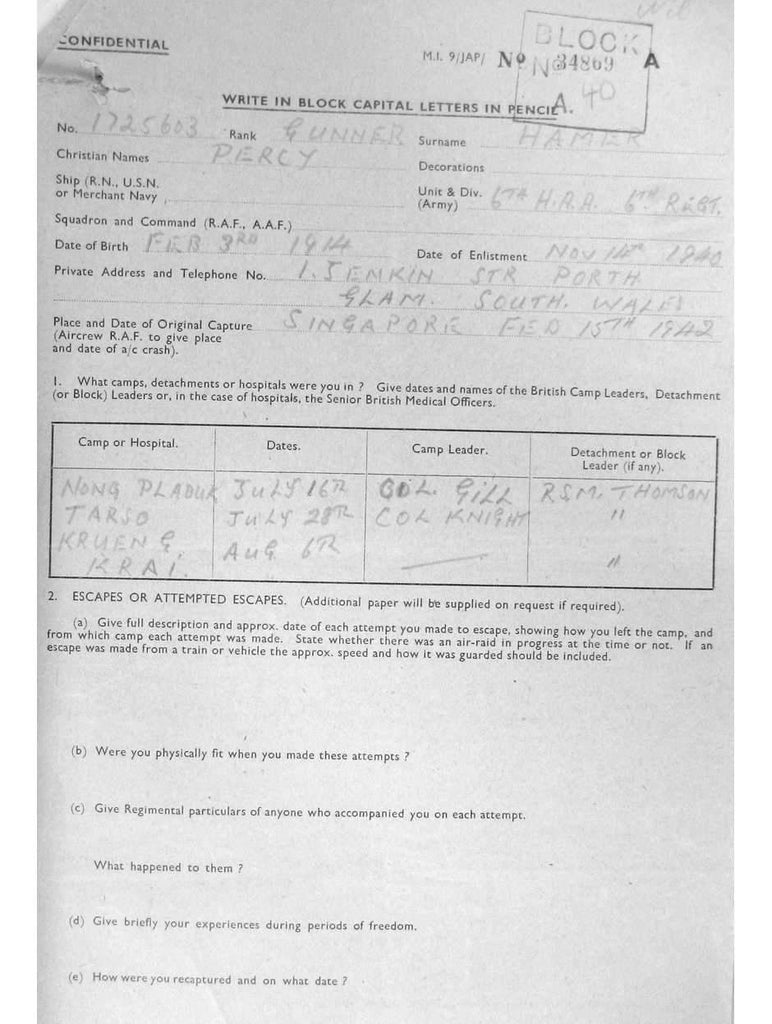 CONFIDENTIAL
M.I. 9/JAP/ No 34869 A
BLOCK
A. 40
WRITE IN BLOCK CAPITAL LETTERS IN PENCIL.
No. 1725603 Rank GUNNER Surname HAMER
Christian Names PERCY Decorations
Ship (R.N., U.S.N. or Merchant Navy
Unit & Div. (Army) 6TH H.A.A. 6TH REGT.
Squadron and Command (R.A.F., A.A.F.)
Date of Birth FEB 3RD 1914 Date of Enlistment NOV 14TH 1940
Private Address and Telephone No. 1. JEMKIN STR PORTH
GLAM. SOUTH. WALES
Place and Date of Original Capture SINGAPORE FEB 15TH 1942
(Aircrew R.A.F. to give place
and date of a/c crash).
1. What camps, detachments or hospitals were you in ? Give dates and names of the British Camp Leaders, Detachment
(or Block) Leaders or, in the case of hospitals, the Senior British Medical Officers.
Camp or Hospital. Dates. Camp Leader. Detachment or Block Leader (if any).
NONG PLADUK JULY 16TH COL. GILL R.S.M. THOMSON
TARSO JULY 28TH COL KNIGHT "
KRUEN G. KRAI. AUG 6TH — "
2. ESCAPES OR ATTEMPTED ESCAPES. (Additional paper will be supplied on request if required).
(a) Give full description and approx. date of each attempt you made to escape, showing how you left the camp, and
from which camp each attempt was made. State whether there was an air-raid in progress at the time or not. If an
escape was made from a train or vehicle the approx. speed and how it was guarded should be included.
(b) Were you physically fit when you made these attempts ?
(c) Give Regimental particulars of anyone who accompanied you on each attempt.
What happened to them ?
(d) Give briefly your experiences during periods of freedom.
(e) How were you recaptured and on what date ?